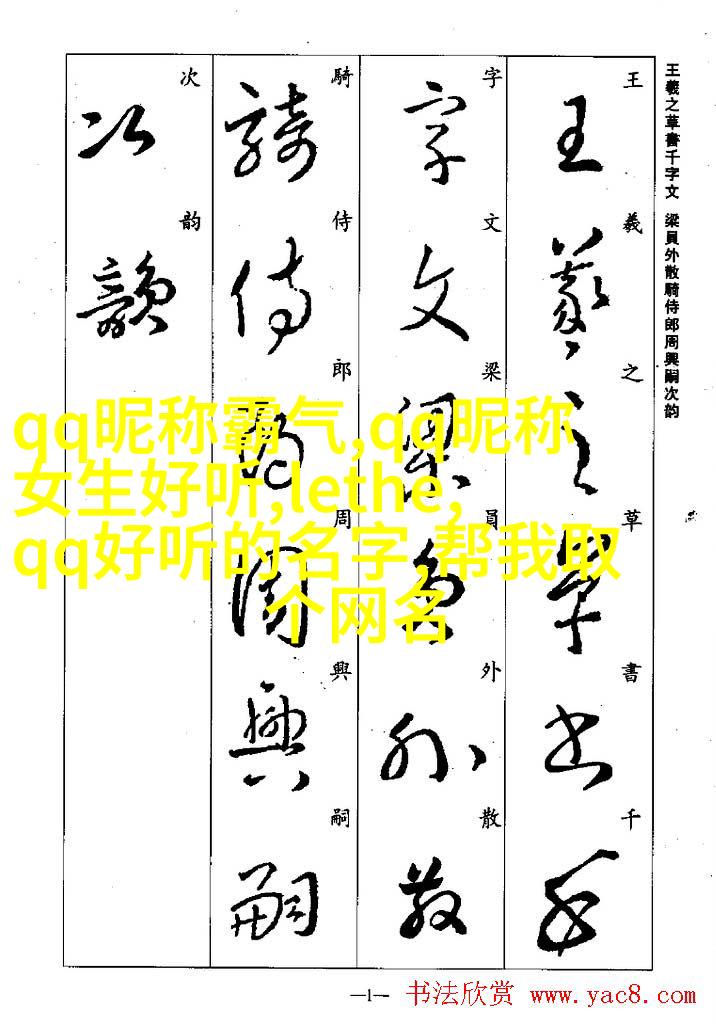 王羲之草書千字文 梁員外散騎侍郎周興嗣次韵
王羲之草書千
王羲之草書千
字文梁員外散
字文梁員外散
騎侍郎周興嗣
騎侍郎周興嗣
次韵
次韻
qq昵称霸气,qq昵称
女生好听,lethe,
qq好听的名字,帮我取
个网名
—1—
书法欣赏 www.yac8.com